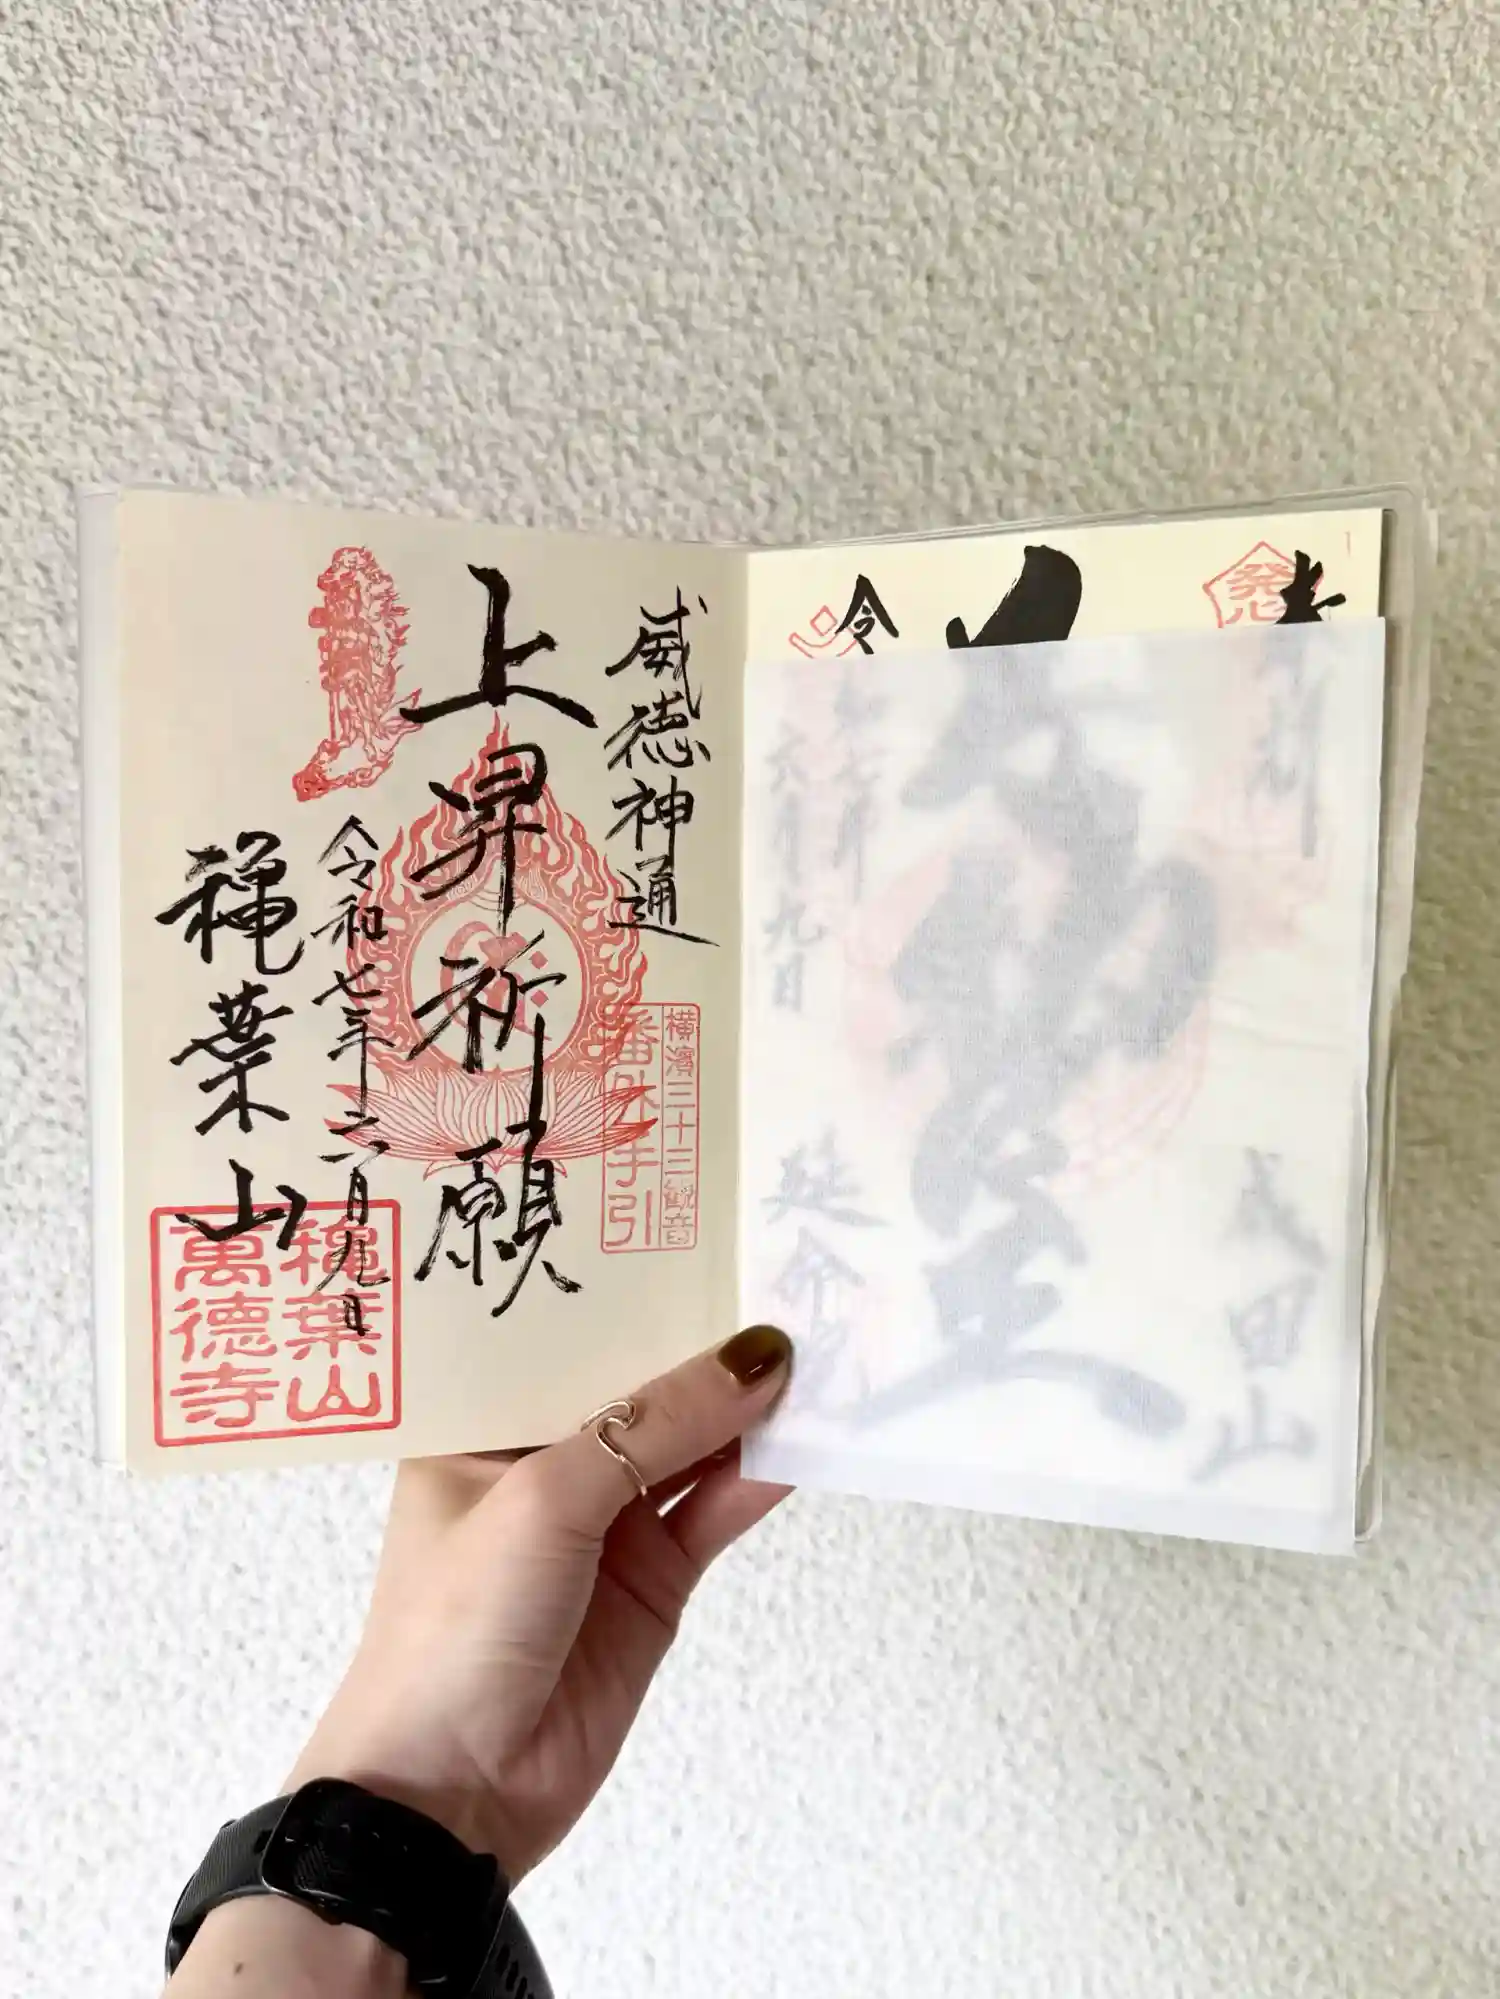 威徳神通
上昇祈願
令和七年六月九日
穐葉山
横濱三十三観音
番外手引
穐葉山
萬德寺
1
奉
発心
令
七年
六月九日
武田山
延命